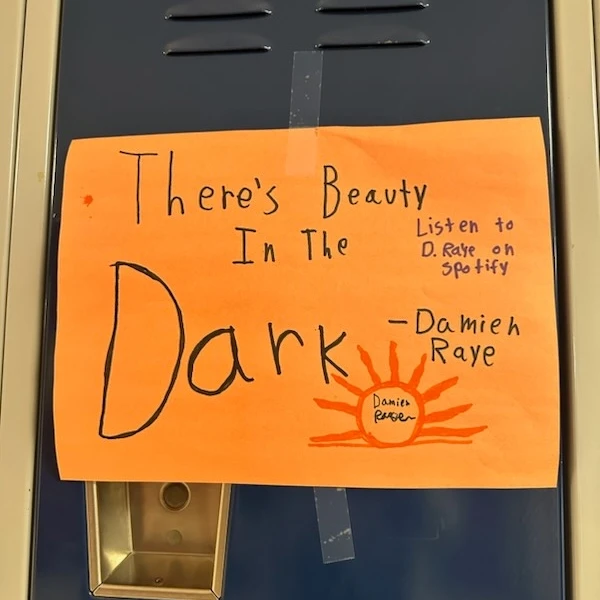 There's Beauty
In The
Dark
Listen to
D. Raye on
Spotify
-Damien
Raye
Damien